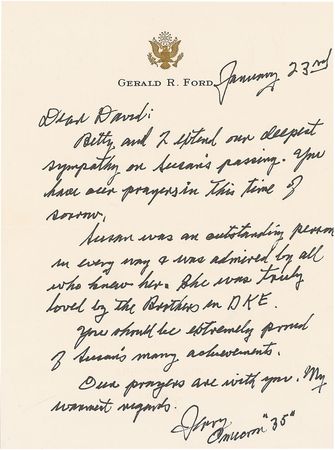 GERALD R. FORD
January 23rd
Dear David:
Betty and I extend our deepest
sympathy on Susan's passing. You
have our prayers in this time of
sorrow.
Susan was an outstanding person
in every way & was admired by all
who knew her. She was truly
loved by the Brothers in DKE.
You should be extremely proud
of Susan's many achievements.
Our prayers are with you. My
warmest regards.
Jerry
Omicron "35"